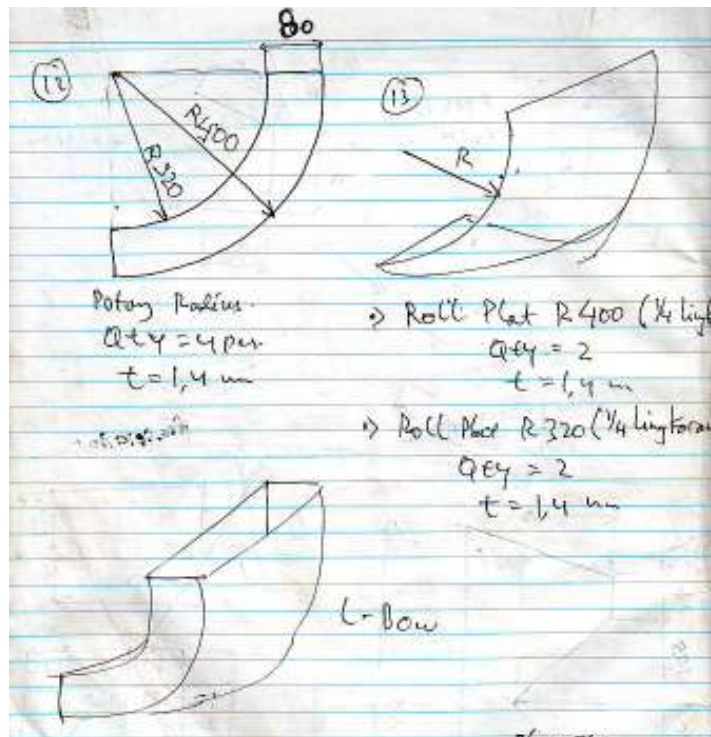 80
12
R400
R320
Potong Radius.
Qty = 4 pcs.
t = 1,4 mm
13
R
Roll Plat R 400 (1/4
Qty = 2
t = 1,4 m
Roll Plat R 320 (1/4
Qty = 2
t = 1,4 mm
L-Bow